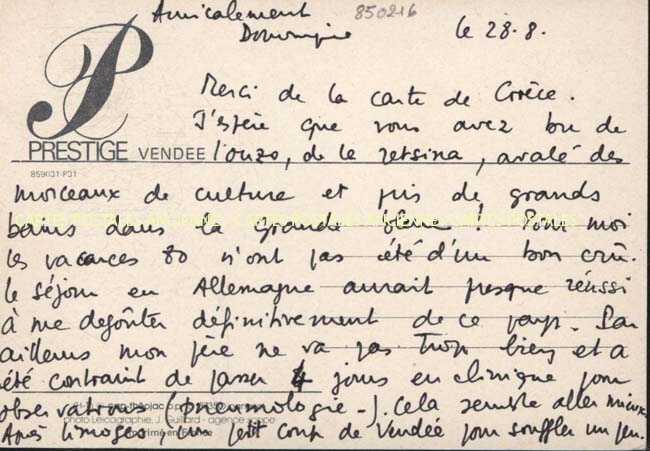 Amicalement
Dominique
850216
le 28.8.
Merci de la carte de Grèce.
J'espère que vous avez bu de
PRESTIGE VENDEE l'ouzo, de le retsina, avalé des
859031-P31
morceaux de culture et pris de grands
bains dans la grande bleue ! Pour moi
les vacances 80 n'ont pas été d'un bon crû.
Le séjour en Allemagne aurait presque réussi
à me dégoûter définitivement de ce pays. Par
ailleurs mon père ne va pas trop bien et a
été contraint de passer 4 jours en clinique pour
cap-théojac
observations (pneumologie-). Cela semble aller mieux.
photo Leicographie, J. Guillard - agence
Après Limoges, un petit coup de Vendée pour souffler un peu.
imprimé en France